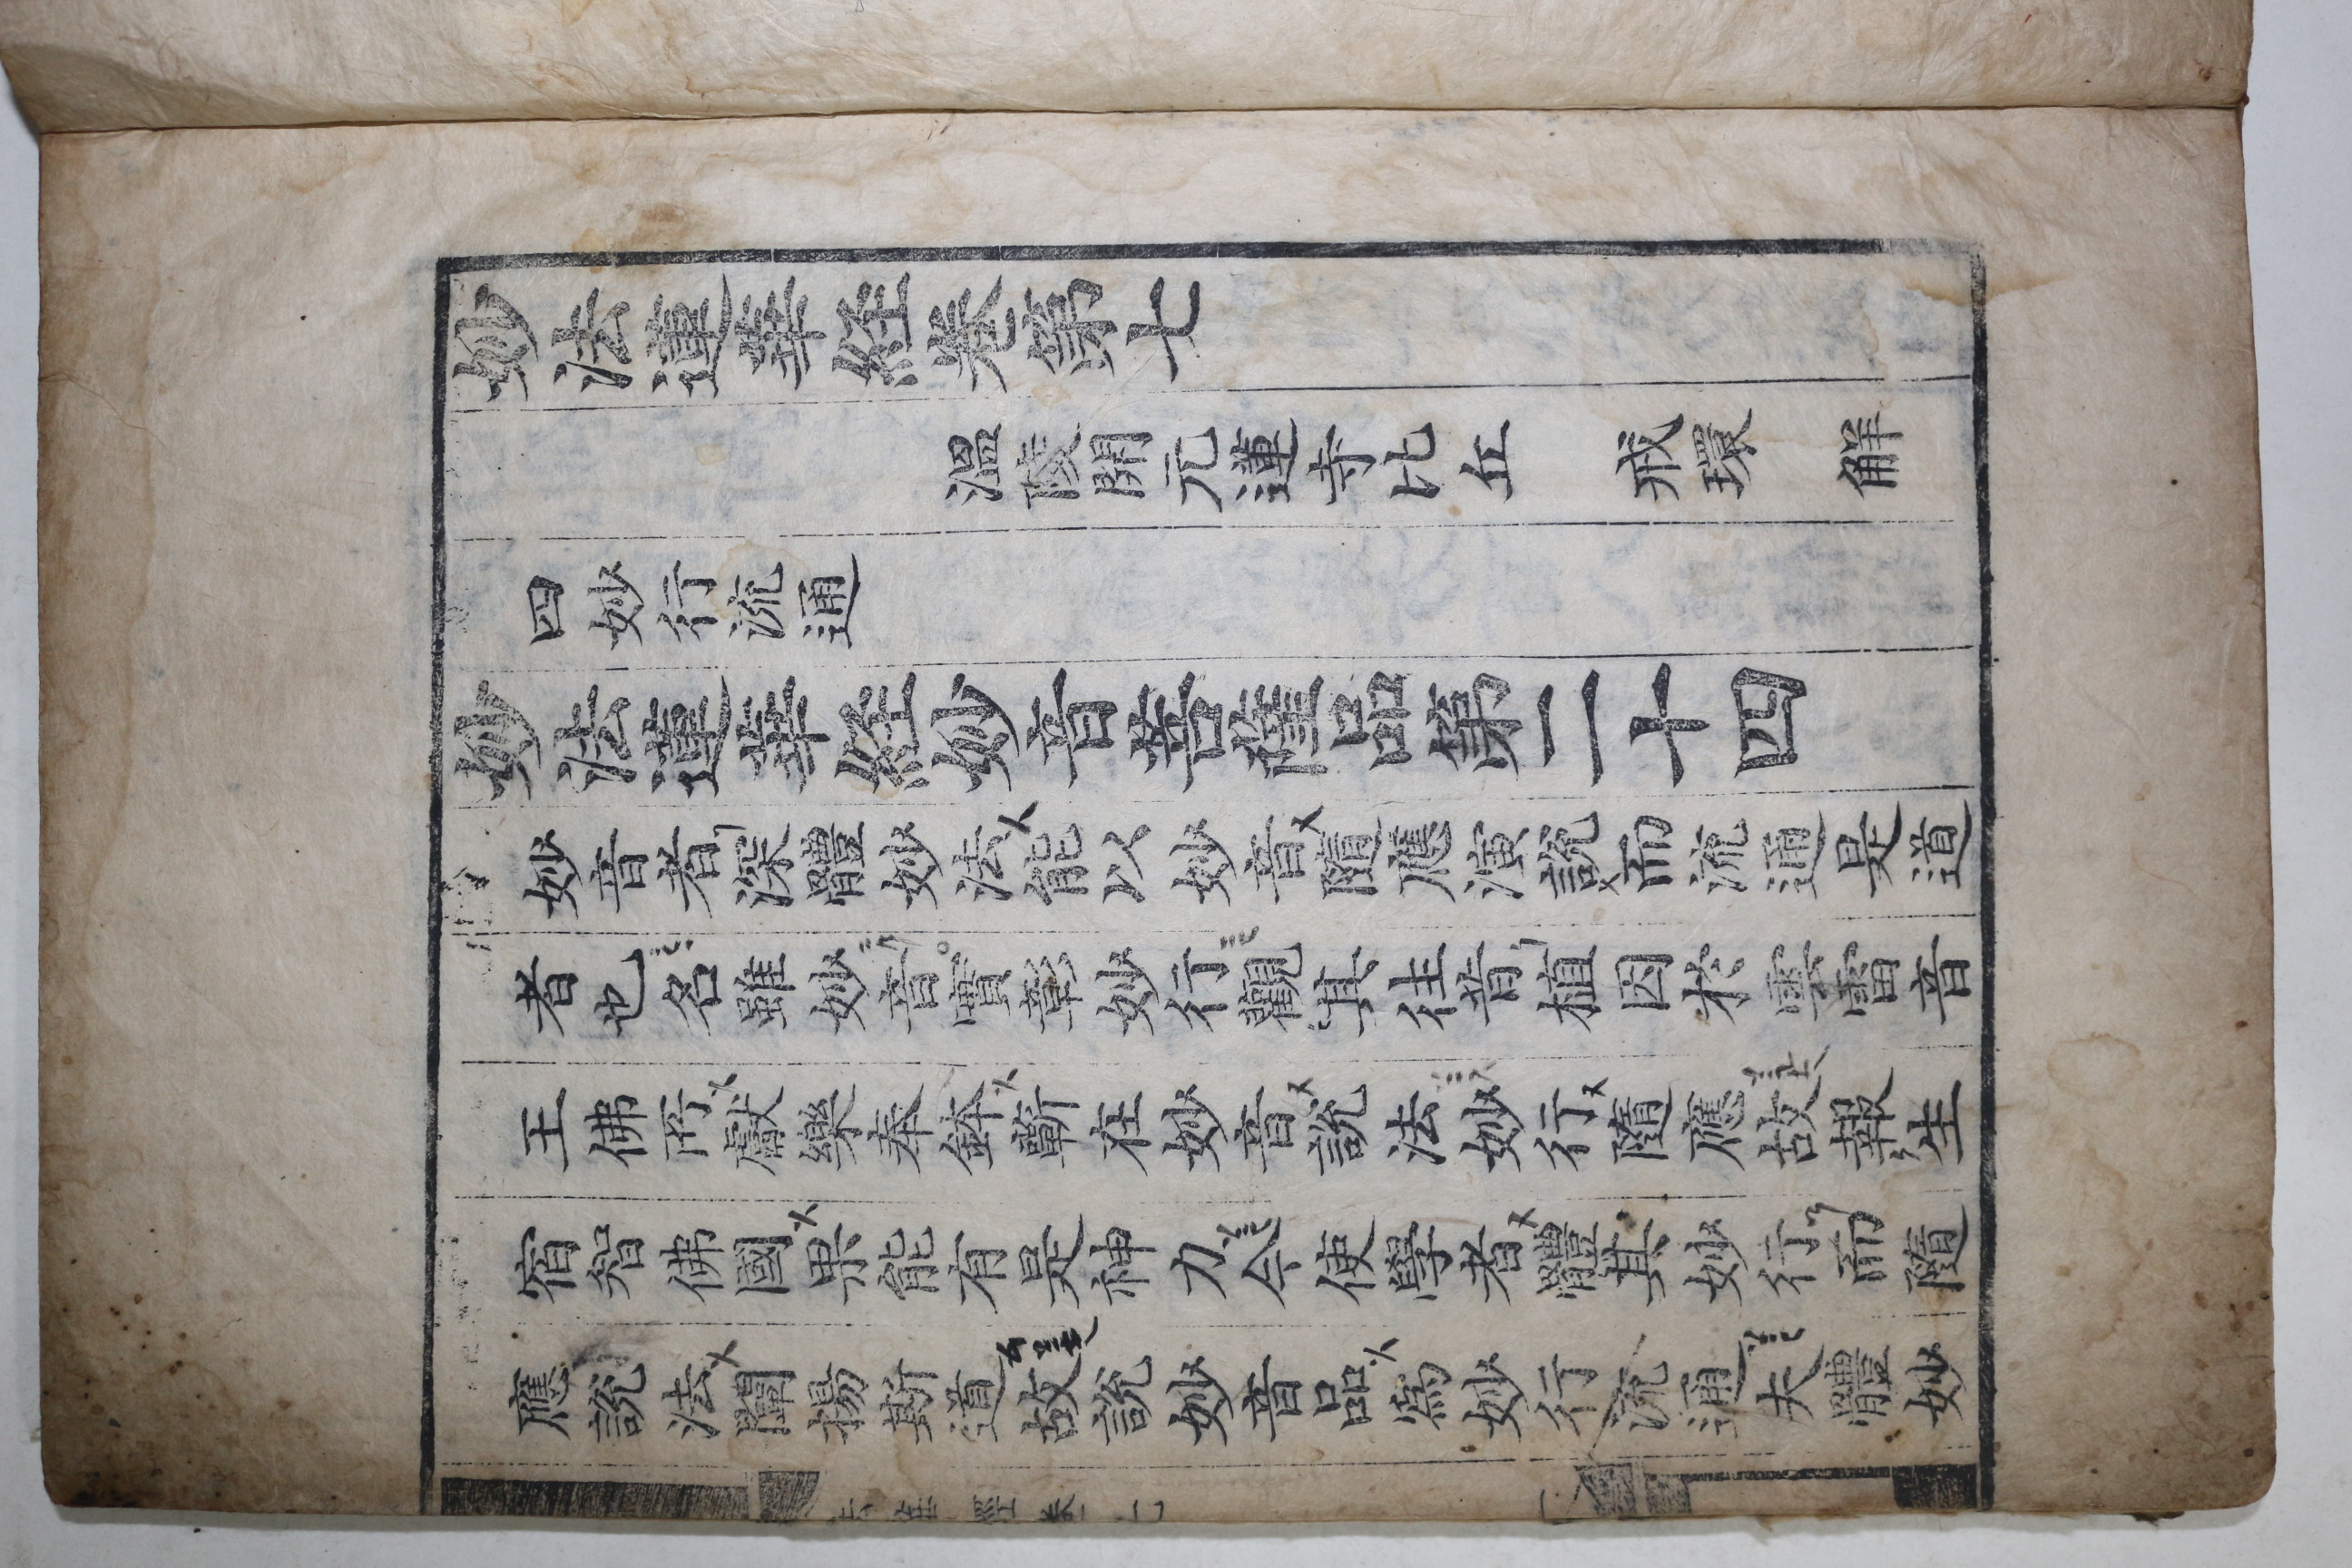 妙法蓮華経卷第七
溫陵開元蓮寺比丘 戒環 解
四妙行流通
妙法蓮華経妙音菩薩品第二十四
妙音者深體妙法能以妙音隨應演說而流通是道
者也名雖妙音實彰妙行觀其往昔植因於雲雷音
王佛所獻樂奉鉢蘄在妙音說法妙行隨應故報生
宿智佛國果能有是神力今使學者體其妙行而隨
應說法闡揚斯道故說妙音品爲妙行流通夫體妙